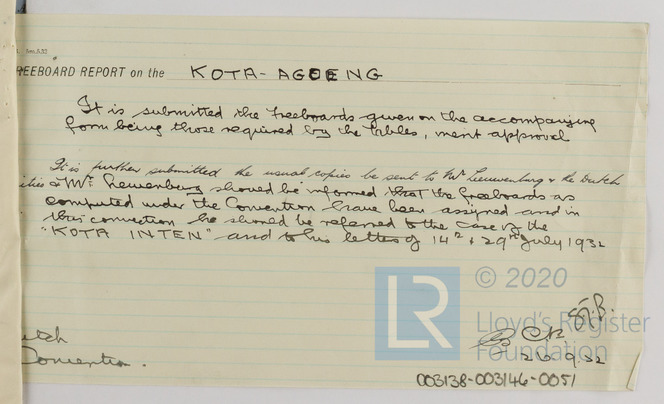 REEBOARD REPORT on the KOTA-AGOENG
It is submitted the freeboards given on the accompanying
form being those required by the Tables, merit approval
It is further submitted the usual copies be sent to Mr Leeuwenburg & the Dutch
ities & Mr. Leeuwenburg should be informed that the freeboards as
computed under the Convention have been assigned and in
this connection he should be referred to the case of the
"KOTA INTEN" and to his letters of 14th & 29th July 1932
utch
Convention.
26.9.32
003138-003146-0051
© 2020
LR
Lloyd's Register
Foundation